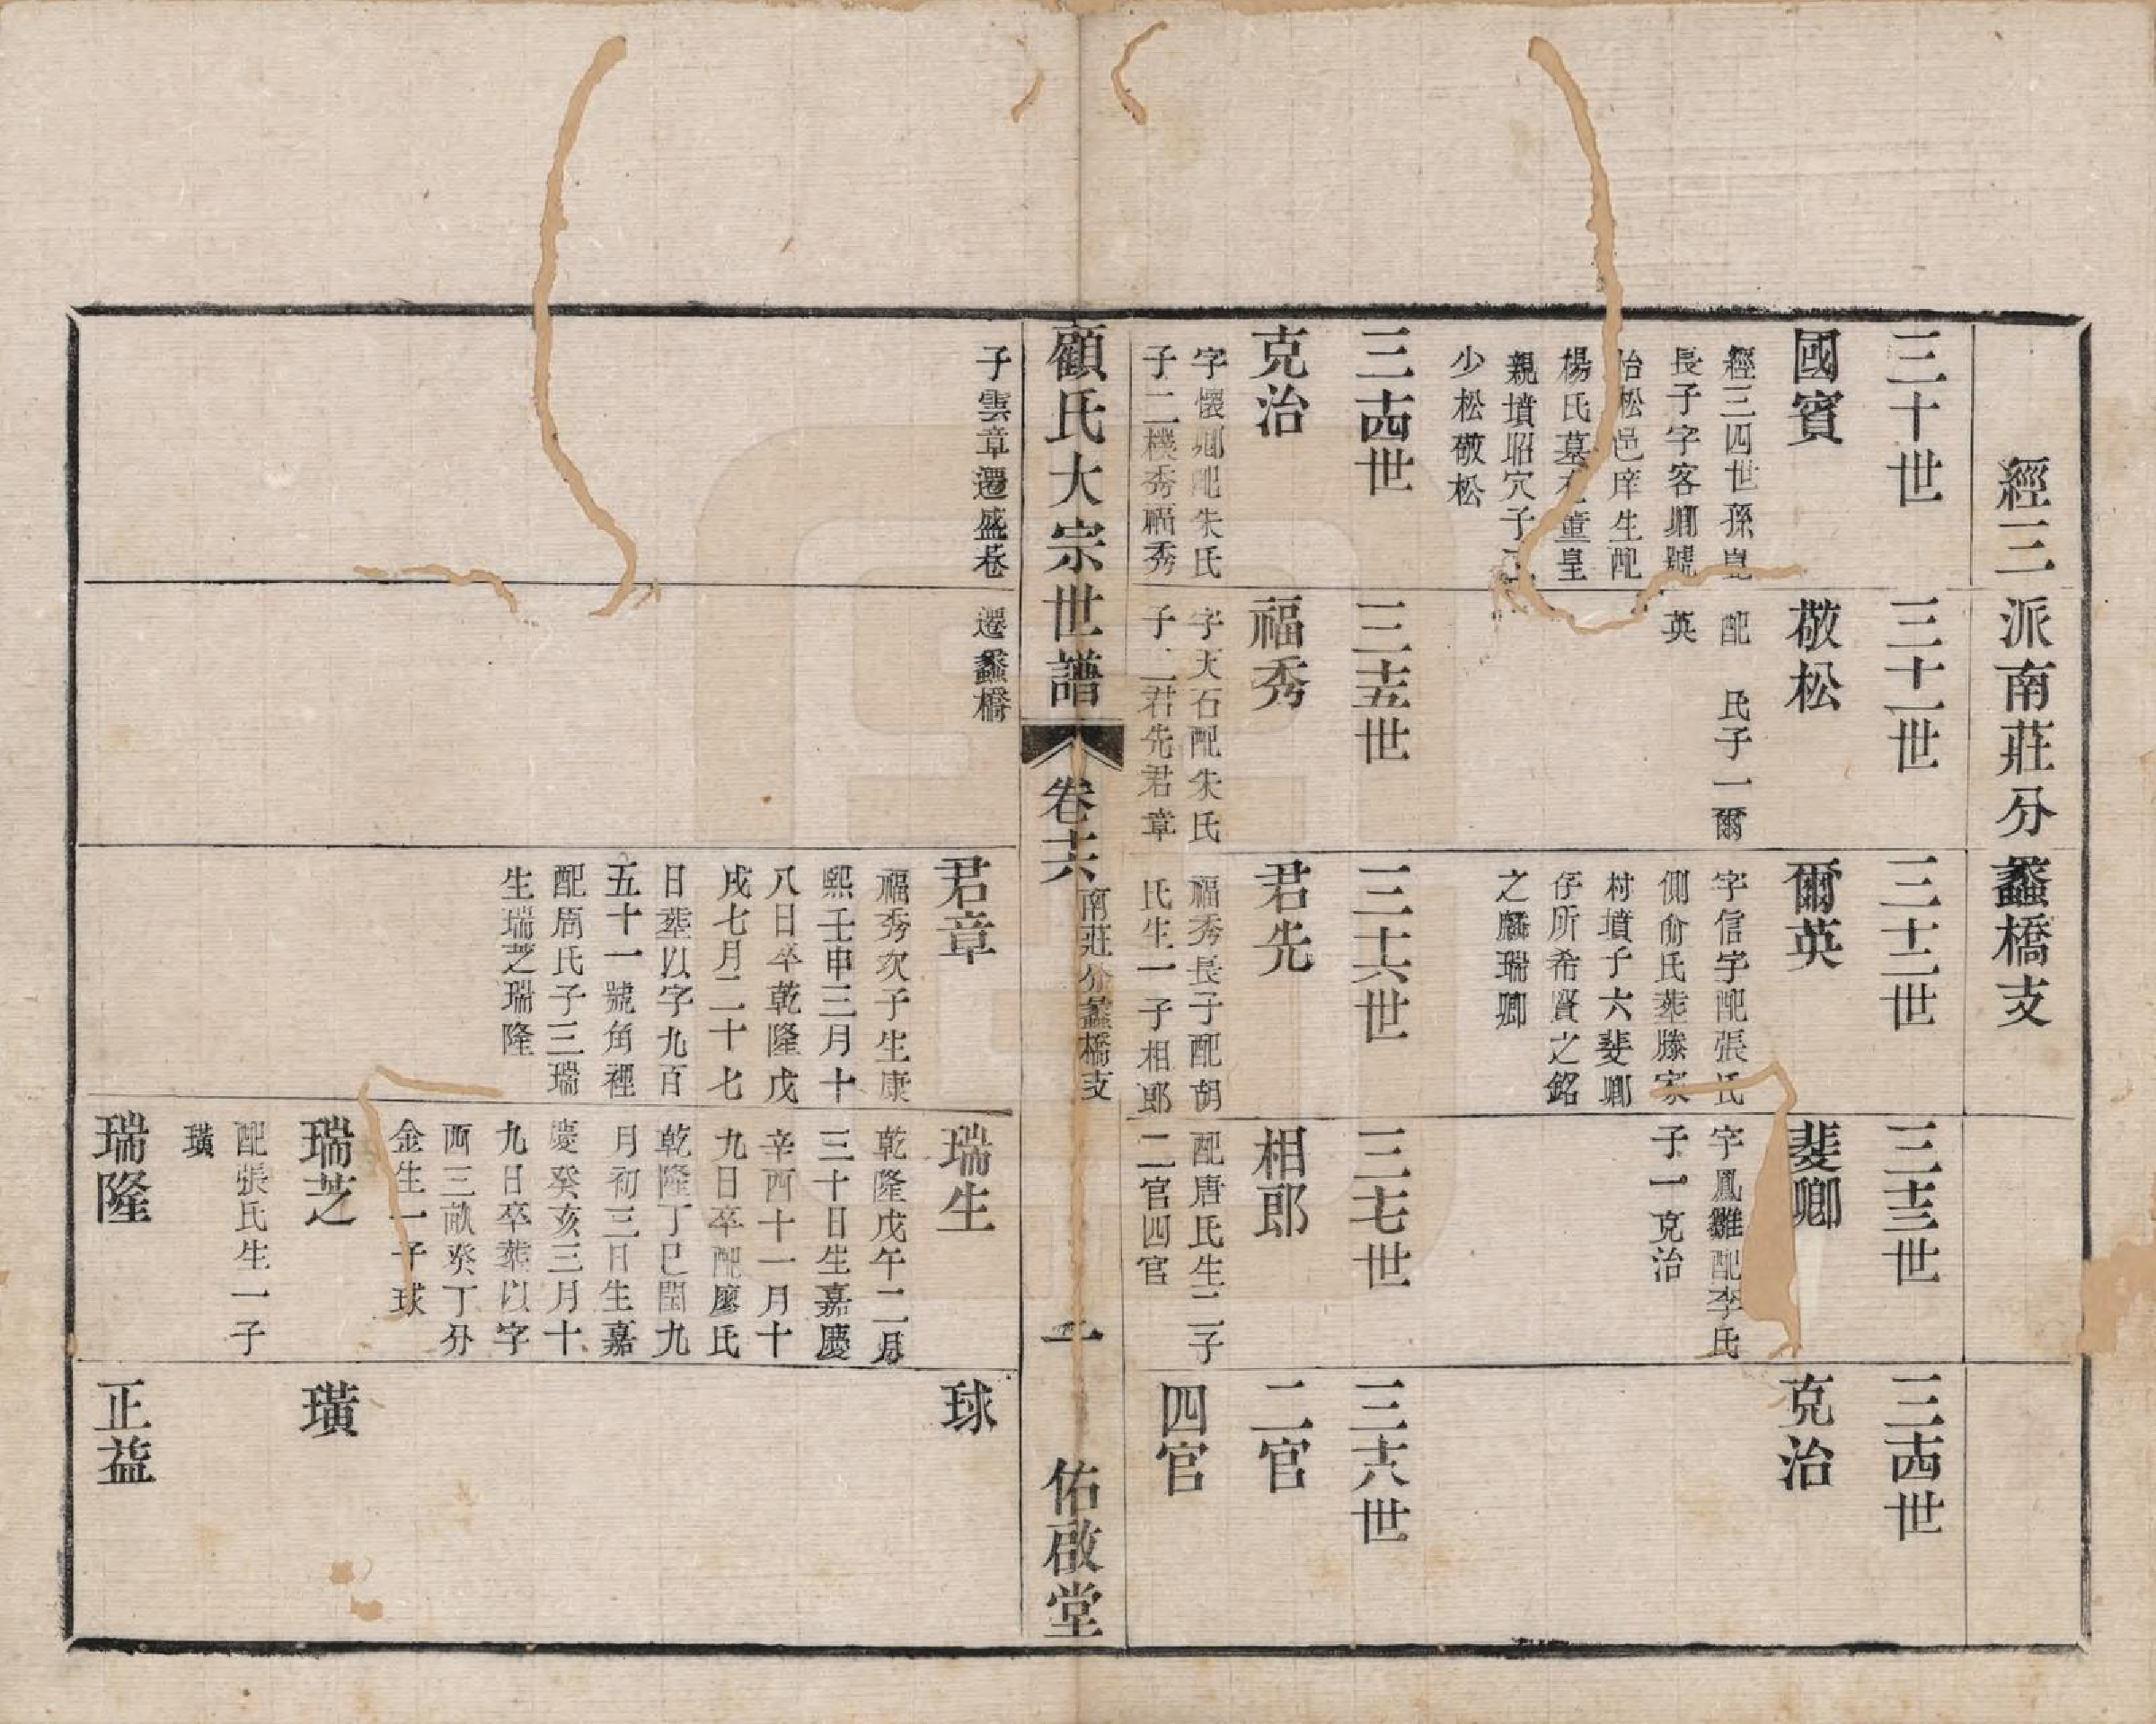 經三派南莊分蠡橋支
三十世
國賓
經三四世孫
長子字客卿號
怡松邑庠生配
楊氏墓在童皇
親墳昭穴子二
少松敬松
三十一世
敬松
配 氏子一爾
英
三十二世
爾英
字信字配張氏
側俞氏葬滕家
村墳子六斐卿
仔所希賢之銘
之麟瑞卿
三十三世
斐卿
字鳳雛配李氏
子一克治
三十四世
克治
三十四世
克治
字懷卿配朱氏
子二樸秀福秀
三十五世
福秀
字大石配朱氏
子二君先君章
三十六世
君先
福秀長子配胡
氏生一子相郎
三十七世
相郎
配唐氏生二子
二官四官
三十八世
二官
四官
顧氏大宗世譜
卷十六
南莊分蠡橋支
一
佑啟堂
子雲章遷盛巷
遷蠡橋
君章
福秀次子生康
熙壬申三月十
八日卒乾隆戊
戌七月二十七
日葬以字九百
五十一號角裡
配周氏子三瑞
生瑞芝瑞隆
瑞生
乾隆戊午二月
三十日生嘉慶
辛酉十一月十
九日卒配廖氏
乾隆丁巳閏九
月初三日生嘉
慶癸亥三月十
九日卒葬以字
西三畝癸丁分
金生一子球
球
瑞芝
配張氏生一子
璜
璜
瑞隆
正益